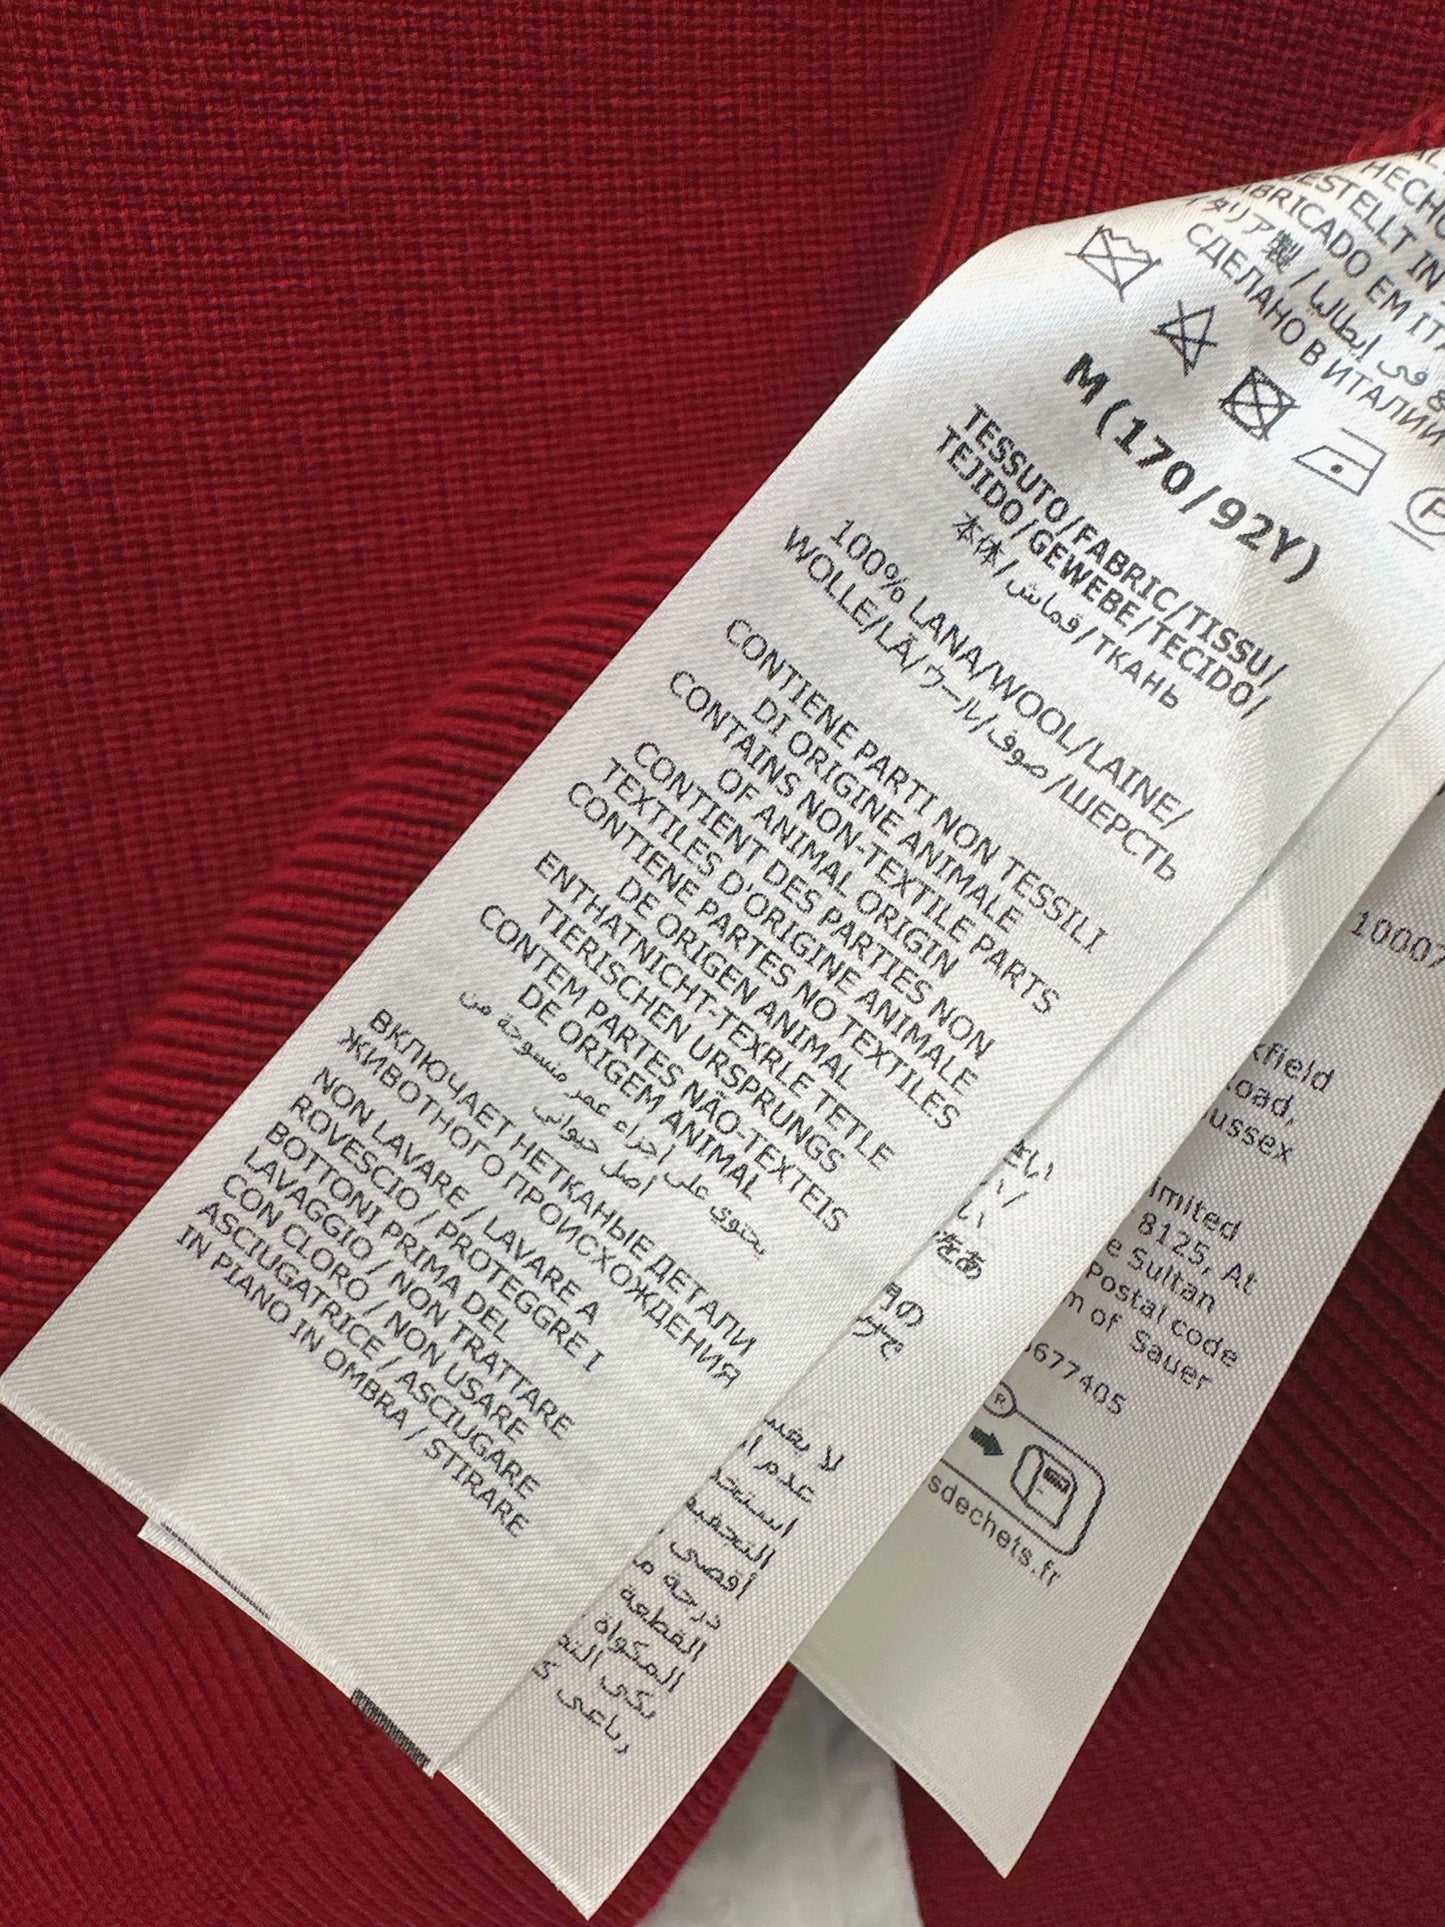 HECHO
ESTELLT IN
FABRICADO EM ITA
イタリア製 / في إيطاليا
СДЕЛАНО В ИТАЛИИ
P
M (170/92Y)
TESSUTO/FABRIC/TISSU/
TEJIDO/GEWEBE/TECIDO/
本体/قماش/ТКАНЬ
100% LANA/WOOL/LAINE/
WOLLE/LÃ/ウール/صوف/ШЕРСТЬ
CONTIENE PARTI NON TESSILI
DI ORIGINE ANIMALE
CONTAINS NON-TEXTILE PARTS
OF ANIMAL ORIGIN
CONTIENT DES PARTIES NON
TEXTILES D'ORIGINE ANIMALE
CONTIENE PARTES NO TEXTILES
DE ORIGEN ANIMAL
ENTHATNICHT-TEXRLE TETLE
TIERISCHEN URSPRUNGS
CONTEM PARTES NÃO-TEXTEIS
DE ORIGEM ANIMAL
يحتوي على أجزاء عمر منسوحة من
أصل حيواني
ВКЛЮЧАЕТ НЕТКАНЫЕ ДЕТАЛИ
ЖИВОТНОГО ПРОИСХОЖДЕНИЯ
NON LAVARE / LAVARE A
ROVESCIO / PROTEGGRE I
BOTTONI PRIMA DEL
LAVAGGIO / NON TRATTARE
CON CLORO / NON USARE
ASCIUGATRICE / ASCIUGARE
IN PIANO IN OMBRA / STIRARE
さい
い/
い
をあ
月の
グで
لا يغس
عدم ا
استخد
التجفيف
أقصى
درجة م
القطعة
المكواة
بكى الند
رباعي ك
10007
kfield
Road,
ussex
imited
8125, At
e Sultan
Postal code
m of Sauer
677405
R
sdechets.fr